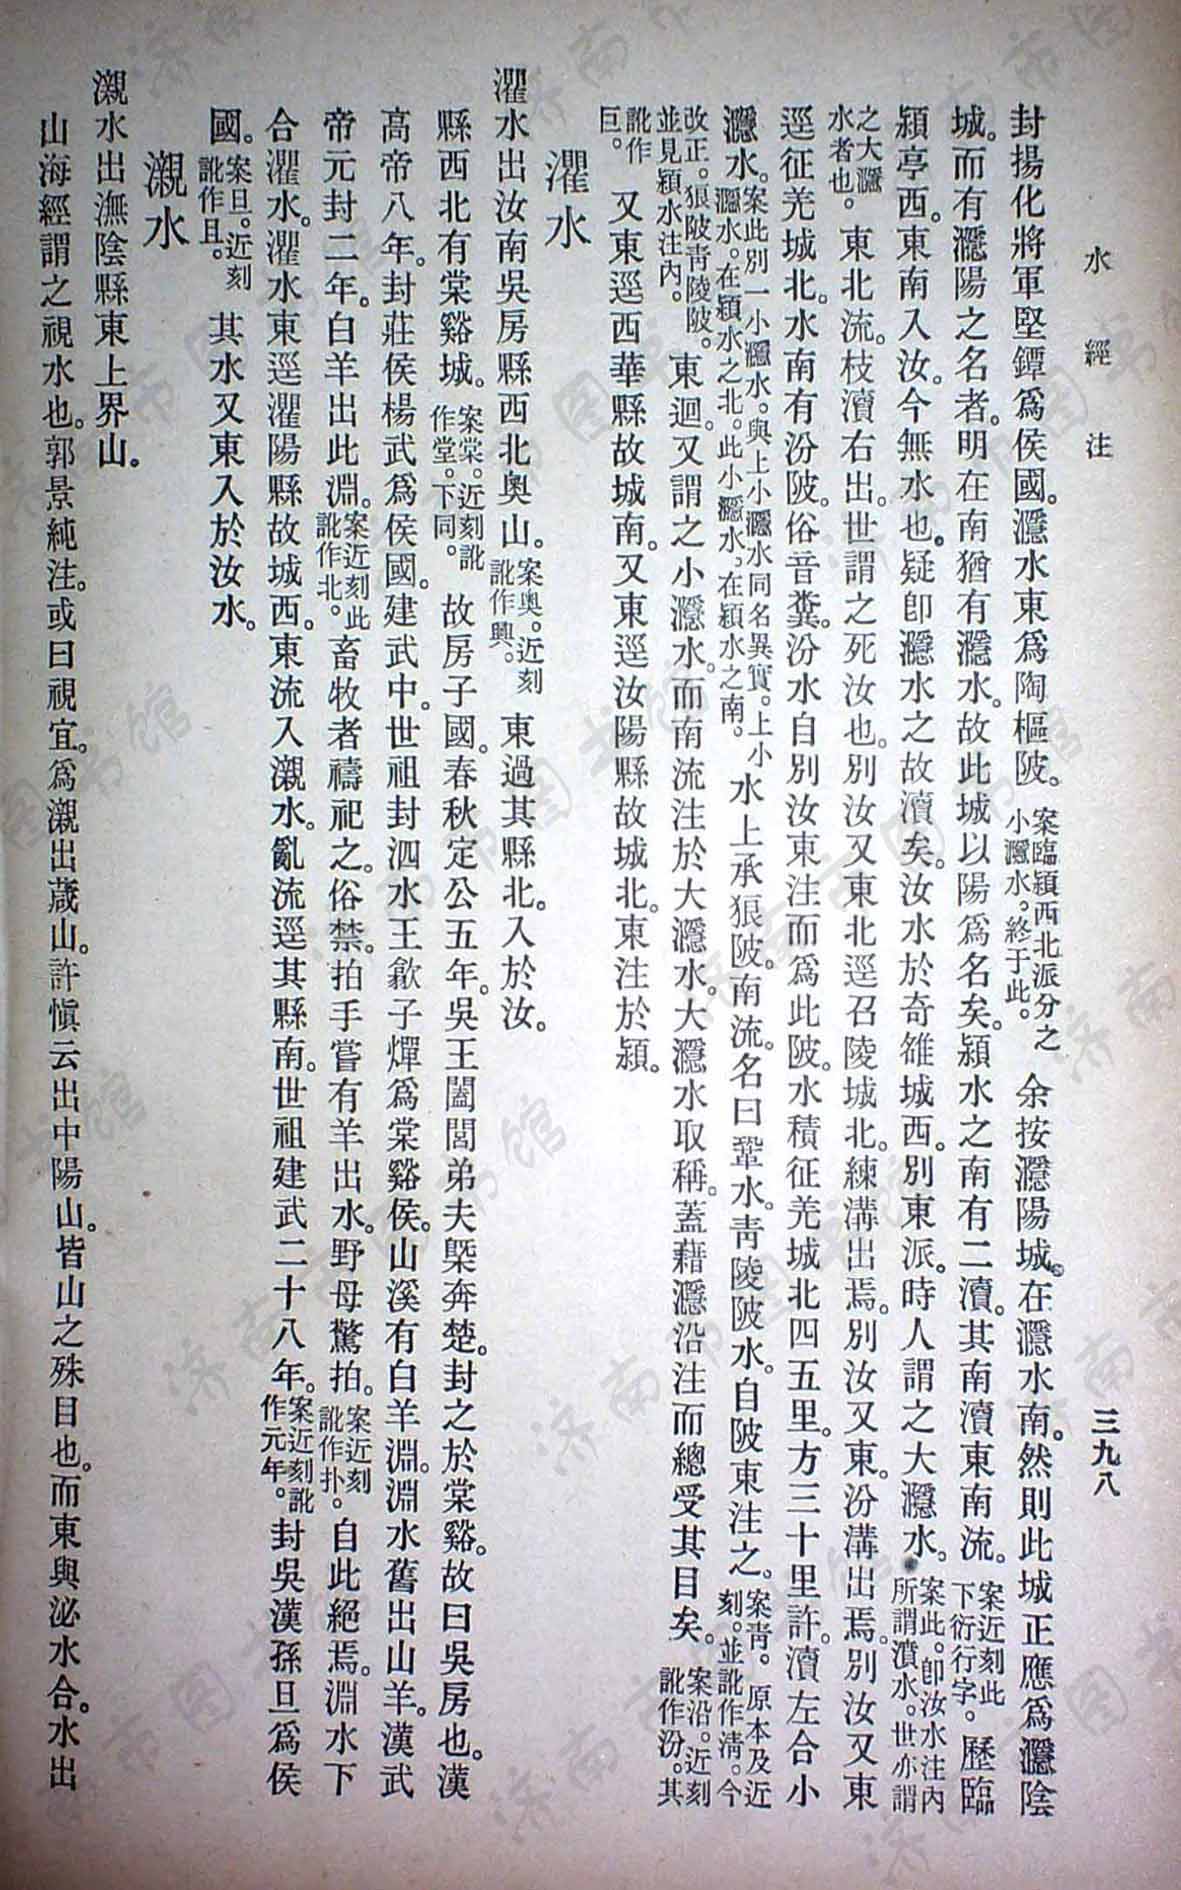 水經注
三九八
封揚化將軍堅鐔爲侯國。濦水東爲陶樞陂。案臨潁西北派分之小濦水。終于此。余按濦陽城。在濦水南。然則此城正應爲濦陰
城。而有濦陽之名者。明在南猶有濦水。故此城以陽爲名矣。潁水之南有二瀆。其南瀆東南流。案近刻此下衍行字。歷臨
潁亭西。東南入汝。今無水也。疑卽濦水之故瀆矣。汝水於奇雒城西。別東派。時人謂之大濦水。案此。卽汝水注內所謂濆水。世亦謂
之大濦水者也。東北流。枝瀆右出。世謂之死汝也。別汝又東北逕召陵城北。練溝出焉。別汝又東。汾溝出焉。別汝又東
逕征羌城北。水南有汾陂。俗音糞。汾水自別汝東注而爲此陂。水積征羌城北四五里。方三十里許。瀆左合小
濦水。案此別一小濦水。與上小濦水同名異實。上小濦水。在潁水之北。此小濦水。在潁水之南。水上承狼陂。南流。名曰鞏水。靑陵陂水。自陂東注之。案靑。原本及近刻。並訛作淸。今
改正。狼陂靑陵陂。並見潁水注內。東迴。又謂之小濦水。而南流注於大濦水。大濦水取稱。蓋藉濦沿注而總受其目矣。案沿。近刻訛作汾。其
訛作巨。又東逕西華縣故城南。又東逕汝陽縣故城北。東注於潁。
灈水
灈水出汝南吳房縣西北奧山。案奧。近刻訛作興。東過其縣北。入於汝。
縣西北有棠谿城。案棠。近刻訛作堂。下同。故房子國。春秋定公五年。吳王闔閭弟夫槩奔楚。封之於棠谿。故曰吳房也。漢
高帝八年。封莊侯楊武爲侯國。建武中。世祖封泗水王歙子燀爲棠谿侯。山溪有白羊淵。淵水舊出山羊。漢武
帝元封二年。白羊出此淵。案近刻此訛作北。畜牧者禱祀之。俗禁。拍手嘗有羊出水。野母驚拍。案近刻訛作扑。自此絕焉。淵水下
合灈水。灈水東逕灈陽縣故城西。東流入瀙水。亂流逕其縣南。世祖建武二十八年。案近刻訛作元年。封吳漢孫旦爲侯
國。案旦。近刻訛作且。其水又東入於汝水。
瀙水
瀙水出潕陰縣東上界山。
山海經謂之視水也。郭景純注。或曰視宜。爲瀙出葴山。許愼云出中陽山。皆山之殊目也。而東與泌水合。水出